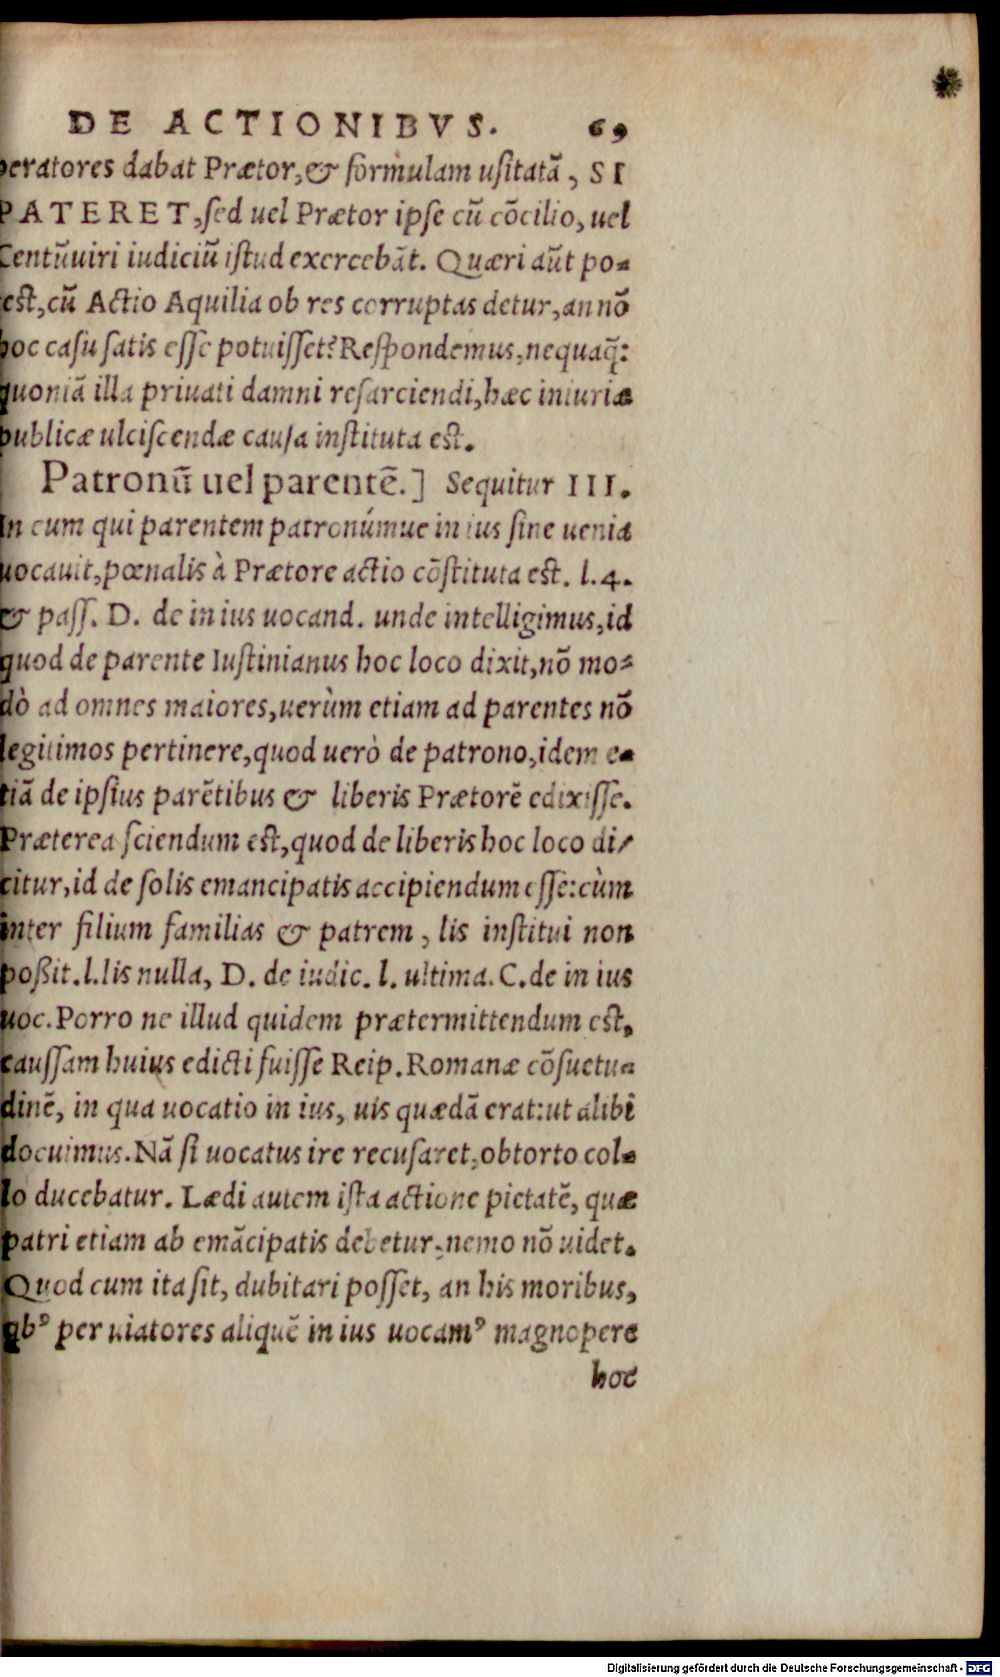 DE ACTIONIBVS. 69
peratores dabat Prætor, & formulam usitatā, SI
PATERET, sed uel Prætor ipse cū cōcilio, uel
Centūuiri iudiciū istud exercebāt. Quæri aūt po-
test, cū Actio Aquilia ob res corruptas detur, an nō
hoc casu satis esse potuisset? Respondemus, nequaq̃:
quoniā illa priuati damni resarciendi, hæc iniuriæ
publicæ ulciscendæ causa instituta est.
Patronū uel parentē.] Sequitur III.
In eum qui parentem patronúmue in ius sine uenia
uocauit, pœnalis à Prætore actio cōstituta est. l.4.
& pass. D. de in ius uocand. unde intelligimus, id
quod de parente Iustinianus hoc loco dixit, nō mo-
dò ad omnes maiores, uerùm etiam ad parentes nō
legitimos pertinere, quod uerò de patrono, idem e-
tiā de ipsius parētibus & liberis Prætorē edixisse.
Præterea sciendum est, quod de liberis hoc loco di-
citur, id de solis emancipatis accipiendum esse: cùm
inter filium familias & patrem, lis institui non
poßit. l. lis nulla, D. de iudic. l. ultima. C. de in ius
uoc. Porro ne illud quidem prætermittendum est,
caussam huius edicti fuisse Reip. Romanæ cōsuetu-
dinē, in qua uocatio in ius, uis quædā erat: ut alibi
docuimus. Nā si uocatus ire recusaret, obtorto col-
lo ducebatur. Lædi autem ista actione pietatē, quæ
patri etiam ab emācipatis debetur, nemo nō uidet.
Quod cum ita sit, dubitari posset, an his moribus,
qbꝰ per uiatores aliquē in ius uocamꝰ magnopere
hoc
Digitalisierung gefördert durch die Deutsche Forschungsgemeinschaft - DFG